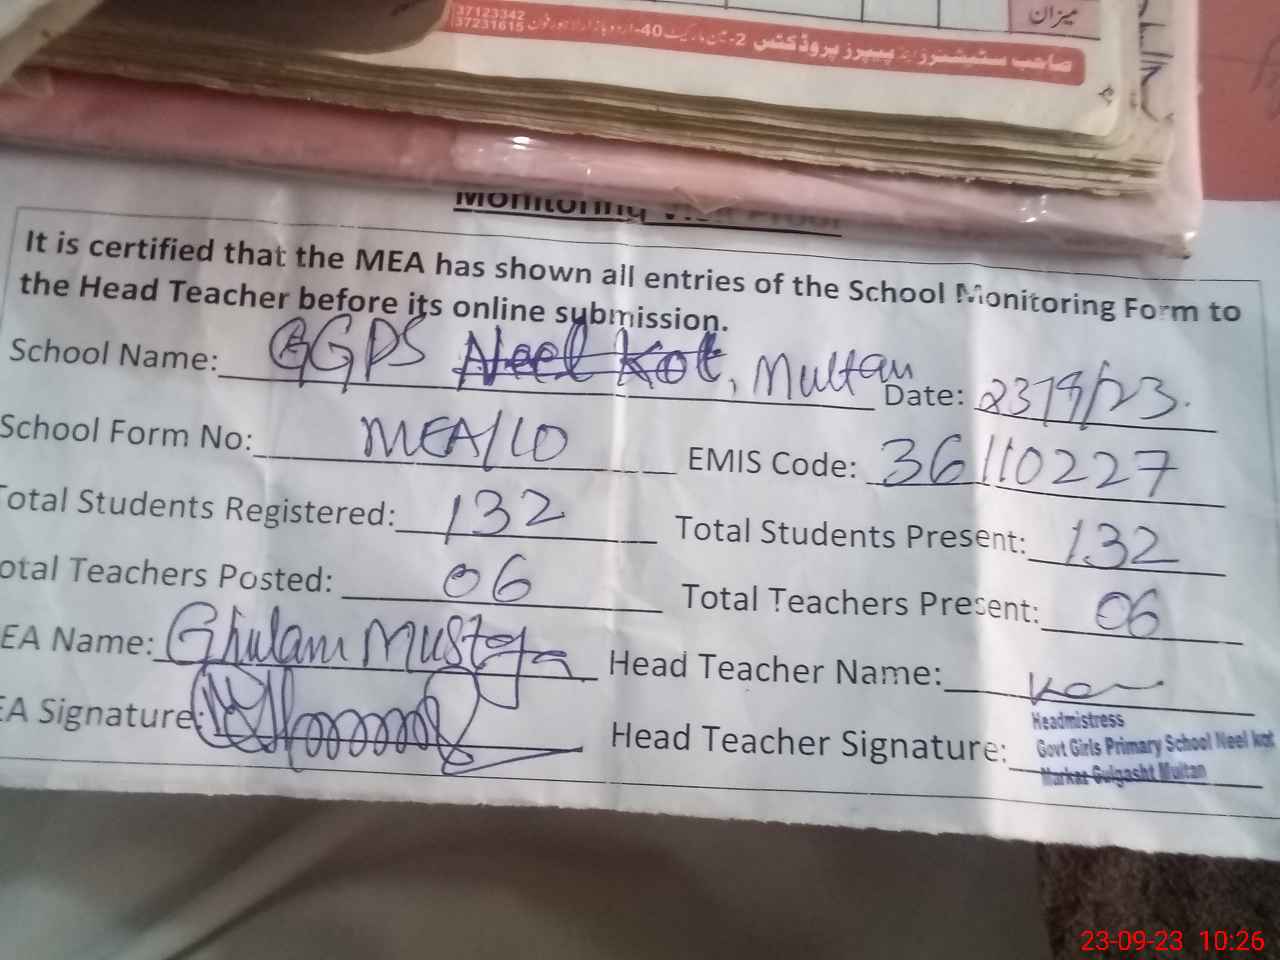 میزان
37123342
37231615
صاحب سٹیشنرز اینڈ پیپرز پروڈکٹس 2-مین مارکیٹ 40-اردو بازار لاہور فون
Monitoring Visit Proof
It is certified that the MEA has shown all entries of the School Monitoring Form to
the Head Teacher before its online submission.
School Name: GGPS Neel Kot, Multan Date: 23/9/23.
School Form No: MEA/10 EMIS Code: 36110227
Total Students Registered: 132 Total Students Present: 132
otal Teachers Posted: 06 Total Teachers Present: 06
EA Name: Ghulam Mustafa Head Teacher Name:
EA Signature: Head Teacher Signature:
Headmistress
Govt Girls Primary School Neel kot
Markaz Gulgasht Multan
23-09-23 10:26